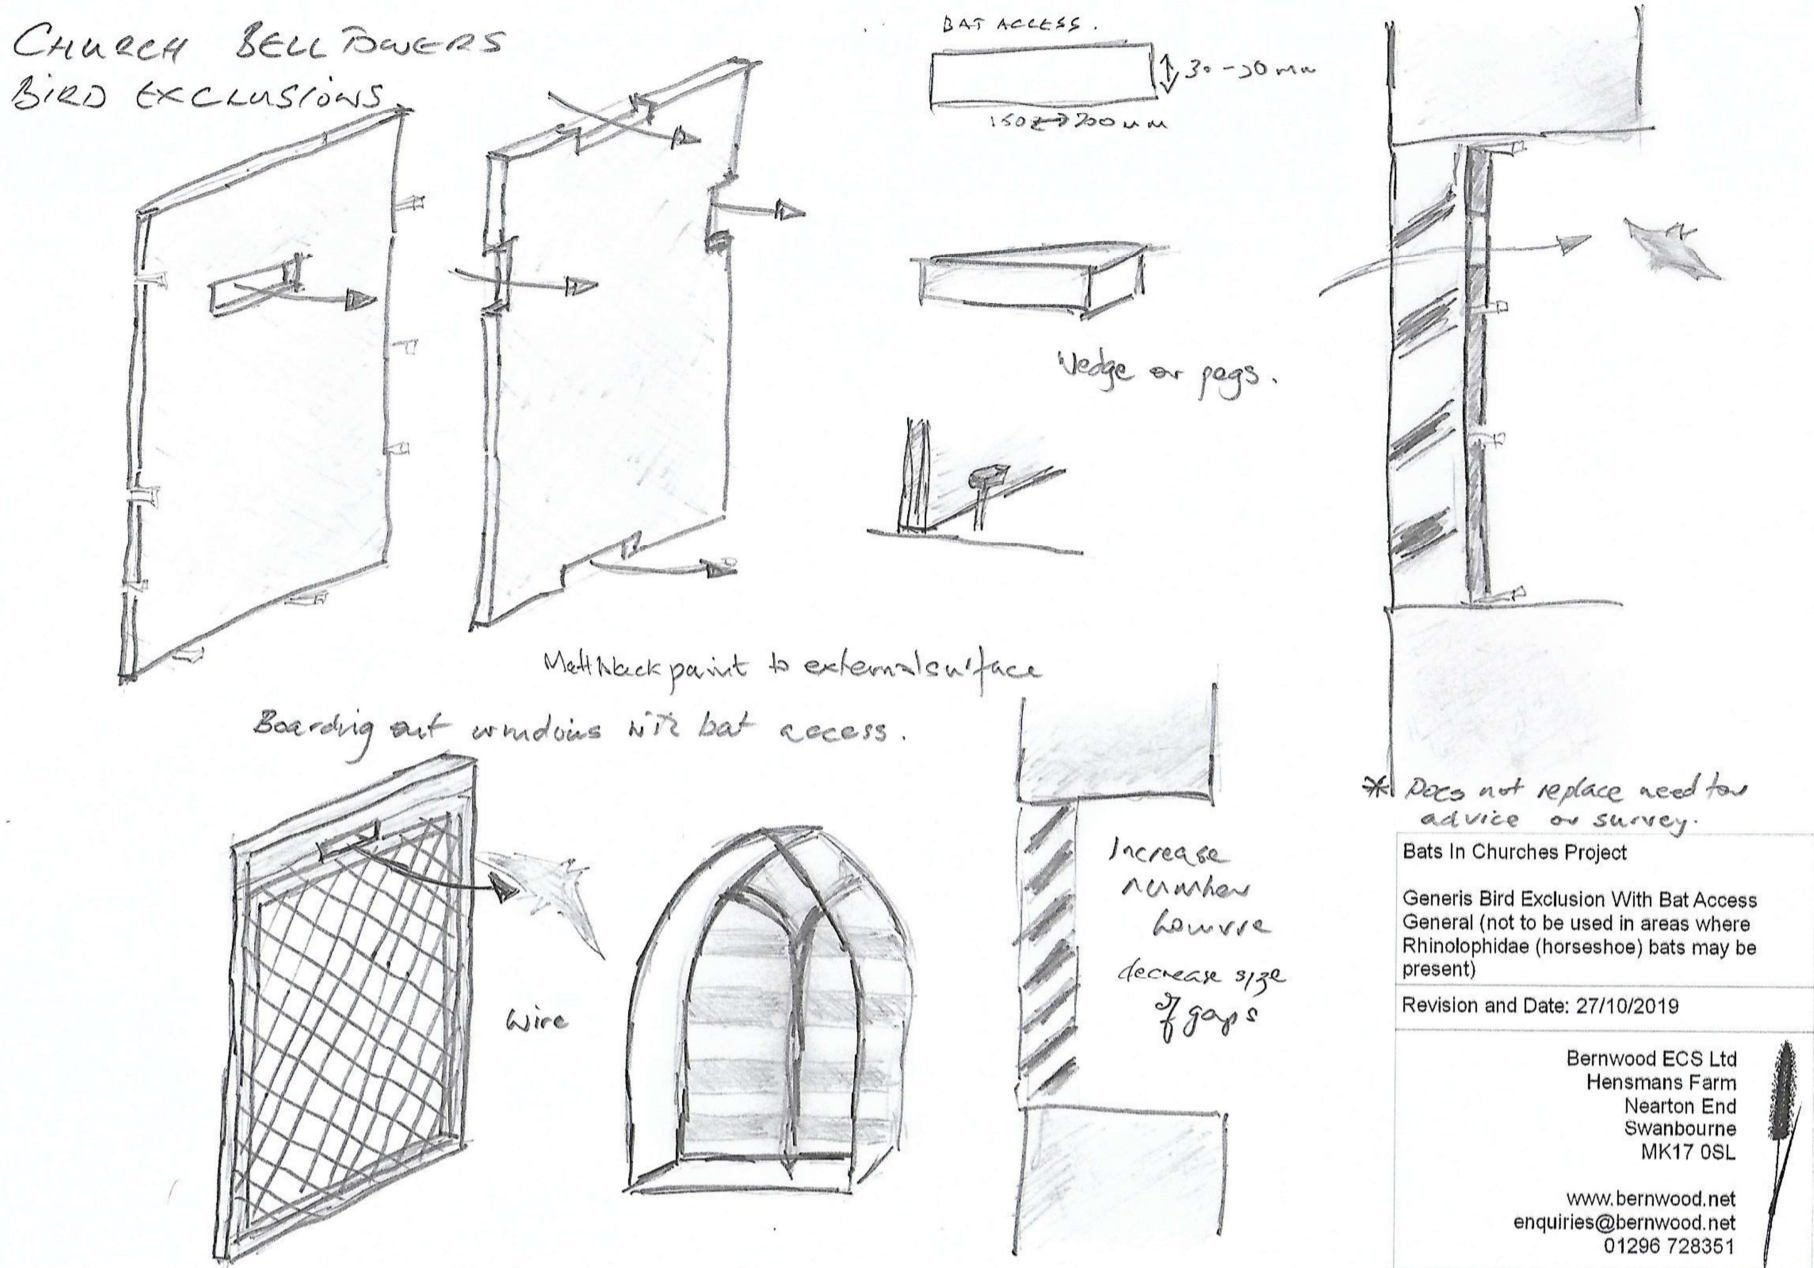 CHURCH BELL TOWERS
BIRD EXCLUSIONS
BAT ACCESS.
30-50mm
150 200mm
Wedge or pegs.
Matt black paint to external surface
Boarding out windows with bat access.
Wire
Increase
number
Louvre
decrease size
of gaps
* Does not replace need for
advice or survey.
Bats In Churches Project
Generis Bird Exclusion With Bat Access
General (not to be used in areas where
Rhinolophidae (horseshoe) bats may be
present)
Revision and Date: 27/10/2019
Bernwood ECS Ltd
Hensmans Farm
Nearton End
Swanbourne
MK17 0SL
www.bernwood.net
enquiries@bernwood.net
01296 728351